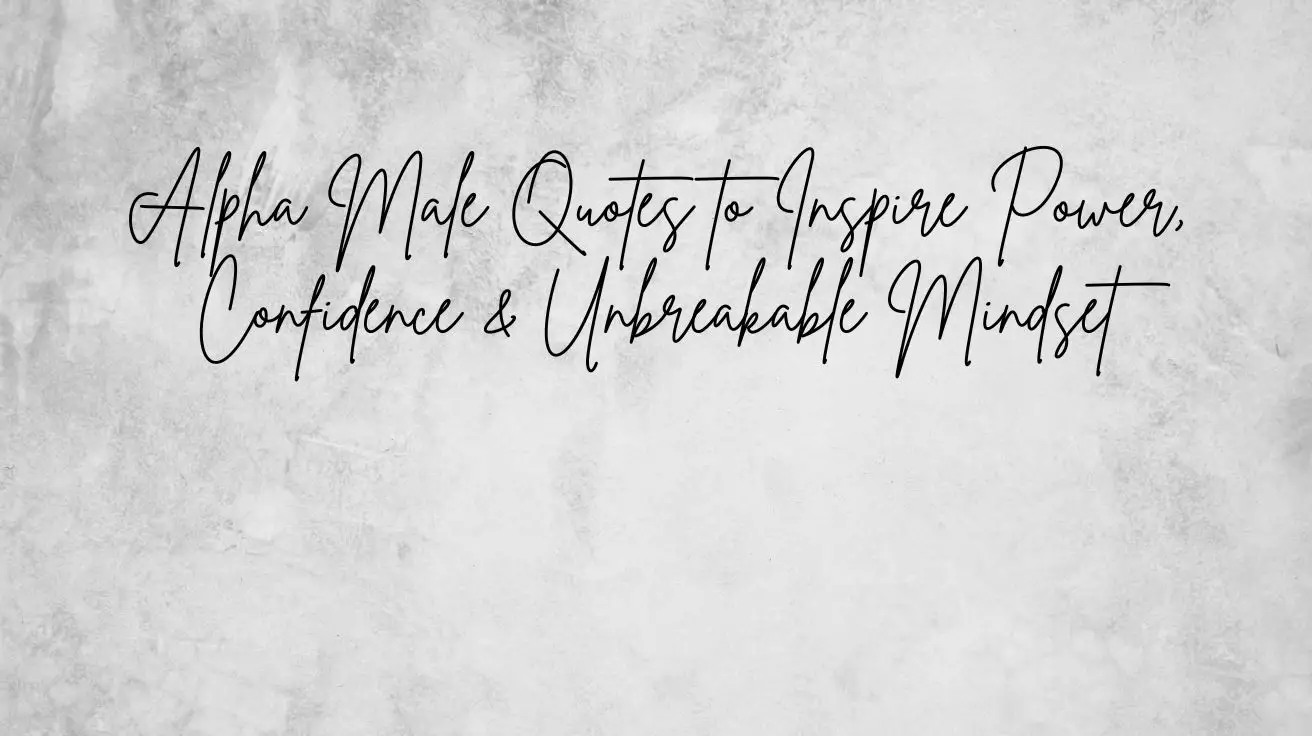 Alpha Male Quotes to Inspire Power,
Confidence & Unbreakable Mindset